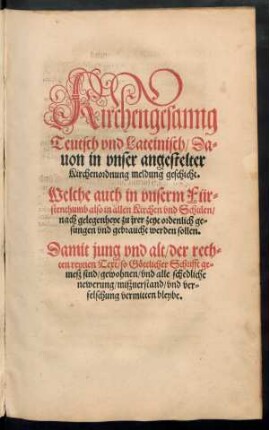 Kirchengesanng
Teutsch vnd Lateinisch/ Da-
uon in vnser angestelter
Kirchenordnung meldung geschicht.
Welche auch in vnserm Für-
stenthumb also in allen Kirchen vnd Schulen/
nach gelegenheyt zu irer zeyt ordenlich ge-
sungen vnd gebraucht werden sollen.
Damit jung vnd alt/ der rech-
ten reynen Text/ so Göttlicher Schrifft ge-
meß sind/ gewohnen/ vnd alle schedliche
newerung/ mißuerstand/ vnd ver-
felschung vermitten bleybe.